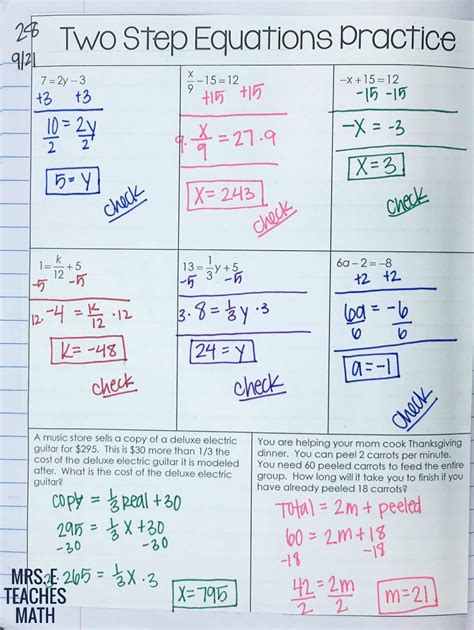 28
9/21
Two Step Equations Practice
7 = 2y − 3
+3 +3
10 = 2y
2 2
5 = y
check
x/9 − 15 = 12
+15 +15
9 · x/9 = 27 · 9
x = 243
check
−x + 15 = 12
-15 -15
-x = -3
x = 3
check
1 = k/12 + 5
-5 -5
12 · -4 = k/12 · 12
k = -48
check
13 = 1/3 y + 5
-5 -5
3 · 8 = 1/3 y · 3
24 = y
check
6a − 2 = −8
+2 +2
6a = -6
6 6
a = -1
check
A music store sells a copy of a deluxe electric
guitar for $295. This is $30 more than 1/3 the
cost of the deluxe electric guitar it is modeled
after. What is the cost of the deluxe electric
guitar?
copy = 1/3 real + 30
295 = 1/3 x + 30
-30 -30
265 = 1/3 x · 3
x = 795
You are helping your mom cook Thanksgiving
dinner. You can peel 2 carrots per minute.
You need 60 peeled carrots to feed the entire
group. How long will it take you to finish if you
have already peeled 18 carrots?
Total = 2m + peeled
60 = 2m + 18
-18 -18
42 = 2m
2 2
m = 21
MRS. E
TEACHES
MATH